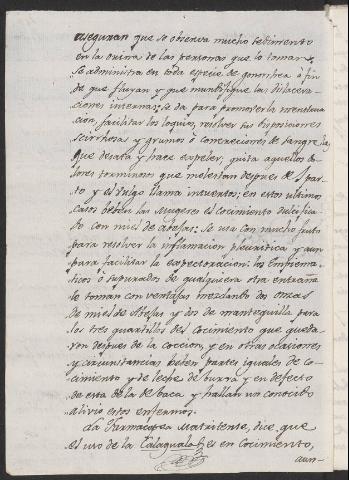 aseguran que se observa mucho sedimento
en la orina de las personas que lo toman.
Se administra en toda especie de gonorrea à fin
de que fluyan y que mundifique las dilacera-
ciones internas; se da para promover la menstrua-
cion, facilitar los loquios, resolver las disposiciones
scirrhosas y grumos ò concreciones de sangre las
que desata y hace expeler, quita aquellos do-
lores torminosos que molestan despues del par-
to y el vulgo llama intuertos; en estos ultimos
casos beben las Mugeres el cocimiento dulcifica-
do con miel de abejas: se usa con mucho fruto
para resolver la inflamacion pleuritica y aun
para facilitar la expectoracion: los Empiema-
ticos ò supurados de qualquiera otra entraña
le toman con ventajas mezclando dos onzas
de miel de Abejas y dos de mantequilla para
los tres quartillos del cocimiento que queda-
ron despues de la coccion, y en otras ocasiones
y circunstancias beben partes iguales de co-
cimiento y de leche de burra y en defecto
de esta de la de baca y hallan un conocido
alivio estos enfermos.
La Farmacopea Matritense, dice que
el uso de la Calaguala es en Cocimiento,
aun-